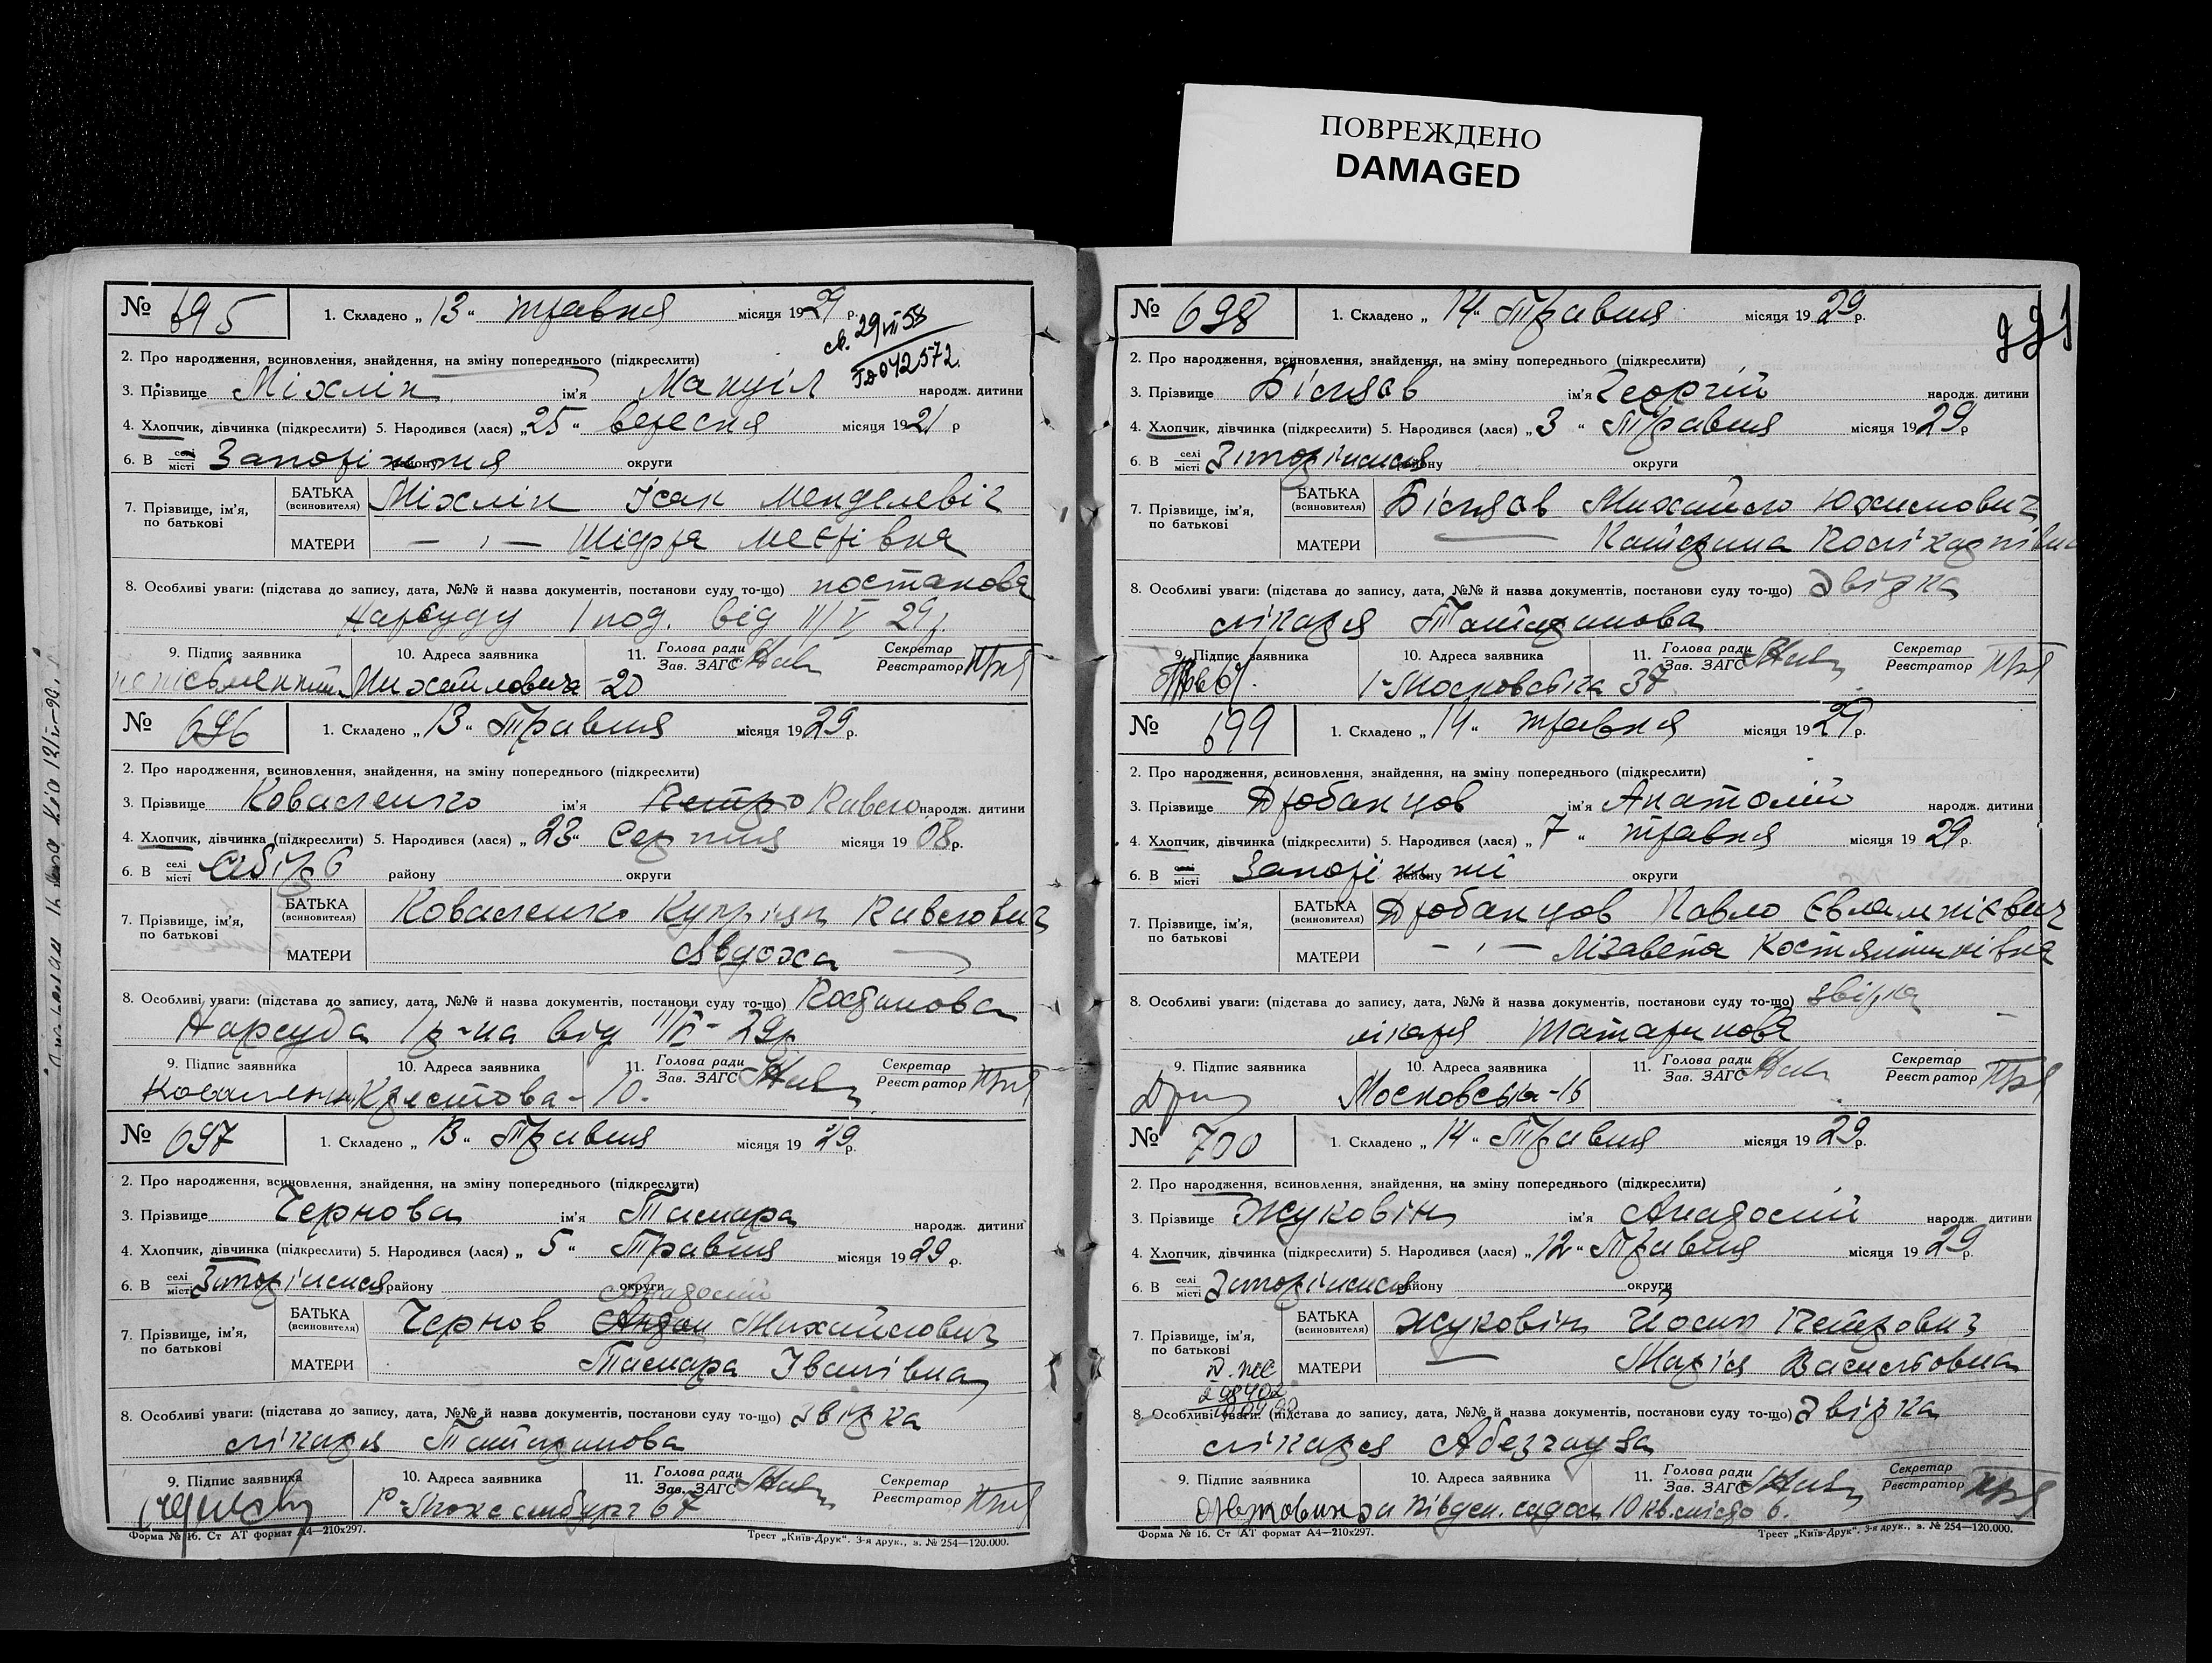 ПОВРЕЖДЕНО
DAMAGED
№ 695
1. Складено „ 13 “ травня місяця 1929 р.
св. 29 VII 58
042572
2. Про народження, всиновлення, знайдення, на зміну попереднього (підкреслити)
3. Прізвище Міхлін ім'я Мануіл народж. дитини
4. Хлопчик, дівчинка (підкреслити) 5. Народився (лася) „ 25 “ вересня місяця 1921 р
6. В селі місті Запоріжжя району округи
7. Прізвище, ім'я, по батькові
БАТЬКА (всиновителя) Міхлін Ісак Менделевіч
МАТЕРИ — „ — Шифра
8. Особливі уваги: (підстава до запису, дата, №№ й назва документів, постанови суду то-що) постанова
Нарсуду 1 від 11/V 29 р.
9. Підпис заявника 10. Адреса заявника 11. Голова ради Зав. ЗАГС Секретар Реєстратор
Михайловича - 20
№ 696
1. Складено „ 13 “ Травня місяця 1929 р.
2. Про народження, всиновлення, знайдення, на зміну попереднього (підкреслити)
3. Прізвище Коваленко ім'я Петро Павло народж. дитини
4. Хлопчик, дівчинка (підкреслити) 5. Народився (лася) „ 23 “ Серпня місяця 1908 р.
6. В селі місті району округи
7. Прізвище, ім'я, по батькові
БАТЬКА (всиновителя) Коваленко Купріян Павлович
МАТЕРИ Явдоха —
8. Особливі уваги: (підстава до запису, дата, №№ й назва документів, постанови суду то-що) Постанова
Нарсуда 1 р-на від 29 р
9. Підпис заявника 10. Адреса заявника 11. Голова ради Зав. ЗАГС Секретар Реєстратор
Коваленко Крестова - 10.
№ 697
1. Складено „ 13 “ Травня місяця 1929 р.
2. Про народження, всиновлення, знайдення, на зміну попереднього (підкреслити)
3. Прізвище Чернова ім'я Тамара народж. дитини
4. Хлопчик, дівчинка (підкреслити) 5. Народився (лася) „ 5 “ Травня місяця 1929 р.
6. В селі місті Запоріжжя району округи
Анатолій
7. Прізвище, ім'я, по батькові
БАТЬКА (всиновителя) Чернов Михайлович
МАТЕРИ Тамара Іванівна
8. Особливі уваги: (підстава до запису, дата, №№ й назва документів, постанови суду то-що) Звірка
лікаря Татаринова
9. Підпис заявника 10. Адреса заявника 11. Голова ради Зав. ЗАГС Секретар Реєстратор
Р-Люксембург 67
Форма № 16. Ст АТ формат А4—210х297.
Трест „Київ-Друк“. 3-я друк., з. № 254—120.000.
№ 698
1. Складено „ 14 “ Травня місяця 1929 р.
2. Про народження, всиновлення, знайдення, на зміну попереднього (підкреслити)
3. Прізвище Біляєв ім'я Георгій народж. дитини
4. Хлопчик, дівчинка (підкреслити) 5. Народився (лася) „ 3 “ Травня місяця 1929 р
6. В селі місті Запоріжжя району округи
7. Прізвище, ім'я, по батькові
БАТЬКА (всиновителя) Біляєв Михайло Юхимович
МАТЕРИ — Катерина Полікарпівна
8. Особливі уваги: (підстава до запису, дата, №№ й назва документів, постанови суду то-що) Звірка
лікаря Татаринова
9. Підпис заявника 10. Адреса заявника 11. Голова ради Зав. ЗАГС Секретар Реєстратор
1-Московська 37
№ 699
1. Складено „ 14 “ травня місяця 1929 р.
2. Про народження, всиновлення, знайдення, на зміну попереднього (підкреслити)
3. Прізвище Дробанцов ім'я Анатолій народж. дитини
4. Хлопчик, дівчинка (підкреслити) 5. Народився (лася) „ 7 “ травня місяця 1929 р.
6. В селі місті Запоріжжі району округи
7. Прізвище, ім'я, по батькові
БАТЬКА (всиновителя) Дробанцов Павло Євлампієвич
МАТЕРИ — „ — Лізавета Костянтинівна
8. Особливі уваги: (підстава до запису, дата, №№ й назва документів, постанови суду то-що) звірка
лікаря Татаринова
9. Підпис заявника 10. Адреса заявника 11. Голова ради Зав. ЗАГС Секретар Реєстратор
Московська - 16
№ 700
1. Складено „ 14 “ Травня місяця 1929 р.
2. Про народження, всиновлення, знайдення, на зміну попереднього (підкреслити)
3. Прізвище Жуковін ім'я Анатолій народж. дитини
4. Хлопчик, дівчинка (підкреслити) 5. Народився (лася) „ 12 “ Травня місяця 1929 р.
6. В селі місті Запоріжжя району округи
7. Прізвище, ім'я, по батькові
БАТЬКА (всиновителя) Жуковін Йосип Петрович
МАТЕРИ — Марія Васильовна
8. Особливі уваги: (підстава до запису, дата, №№ й назва документів, постанови суду то-що) Звірка
лікаря Абезгауза
9. Підпис заявника 10. Адреса заявника 11. Голова ради Зав. ЗАГС Секретар Реєстратор
10 кв. 6.
Форма № 16. Ст АТ формат А4—210х297.
Трест „Київ-Друк“. 3-я друк., з. № 254—120.000.